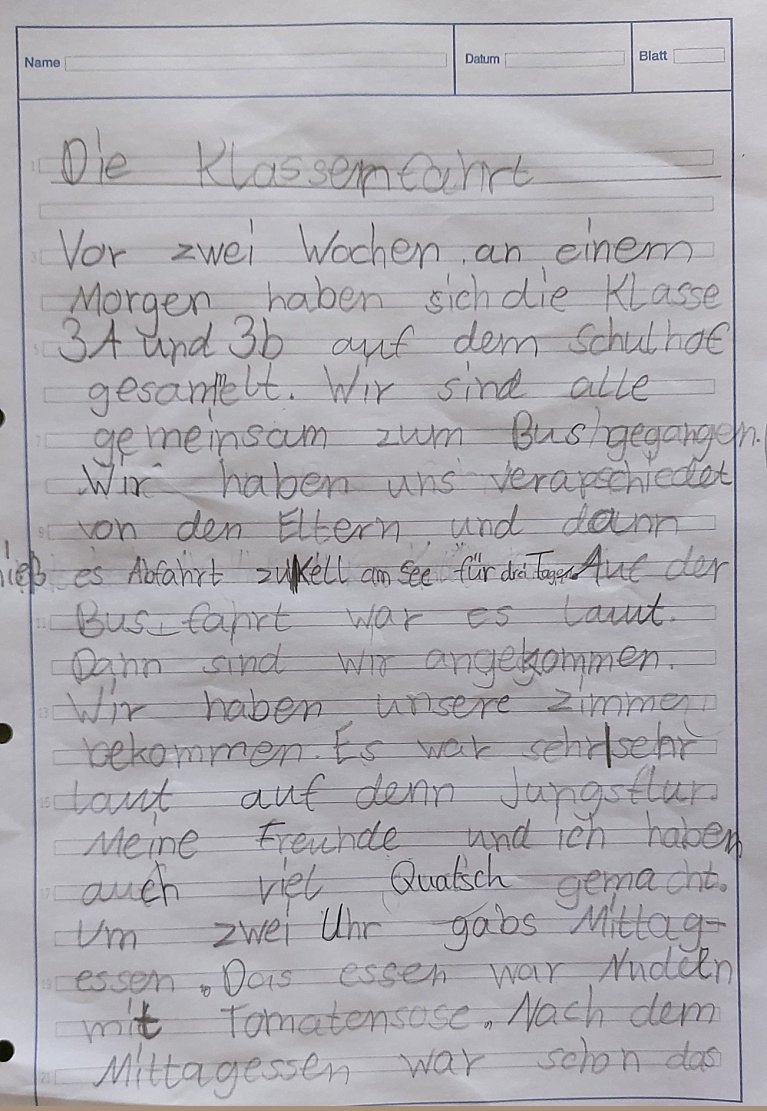 Name Datum Blatt
Die Klassenfahrt
Vor zwei Wochen an einem
Morgen haben sich die Klasse
3A und 3b auf dem Schulhof
gesamelt. Wir sind alle
gemeinsam zum Bus gegangen.
Wir haben uns verapschiedet
von den Eltern, und dann
hieß es Abfahrt zu Kell am See für drei Tage. Auf der
Bus_fahrt war es laut.
Dann sind wir angekommen.
Wir haben unsere Zimmer
bekommen. Es war sehr sehr
laut auf denn Jungsflur.
Meine Freunde und ich haben
auch viel Quatsch gemacht.
Um zwei Uhr gabs Mittag-
essen. Das essen war Nudeln
mit Tomatensose. Nach dem
Mittagessen war schon das